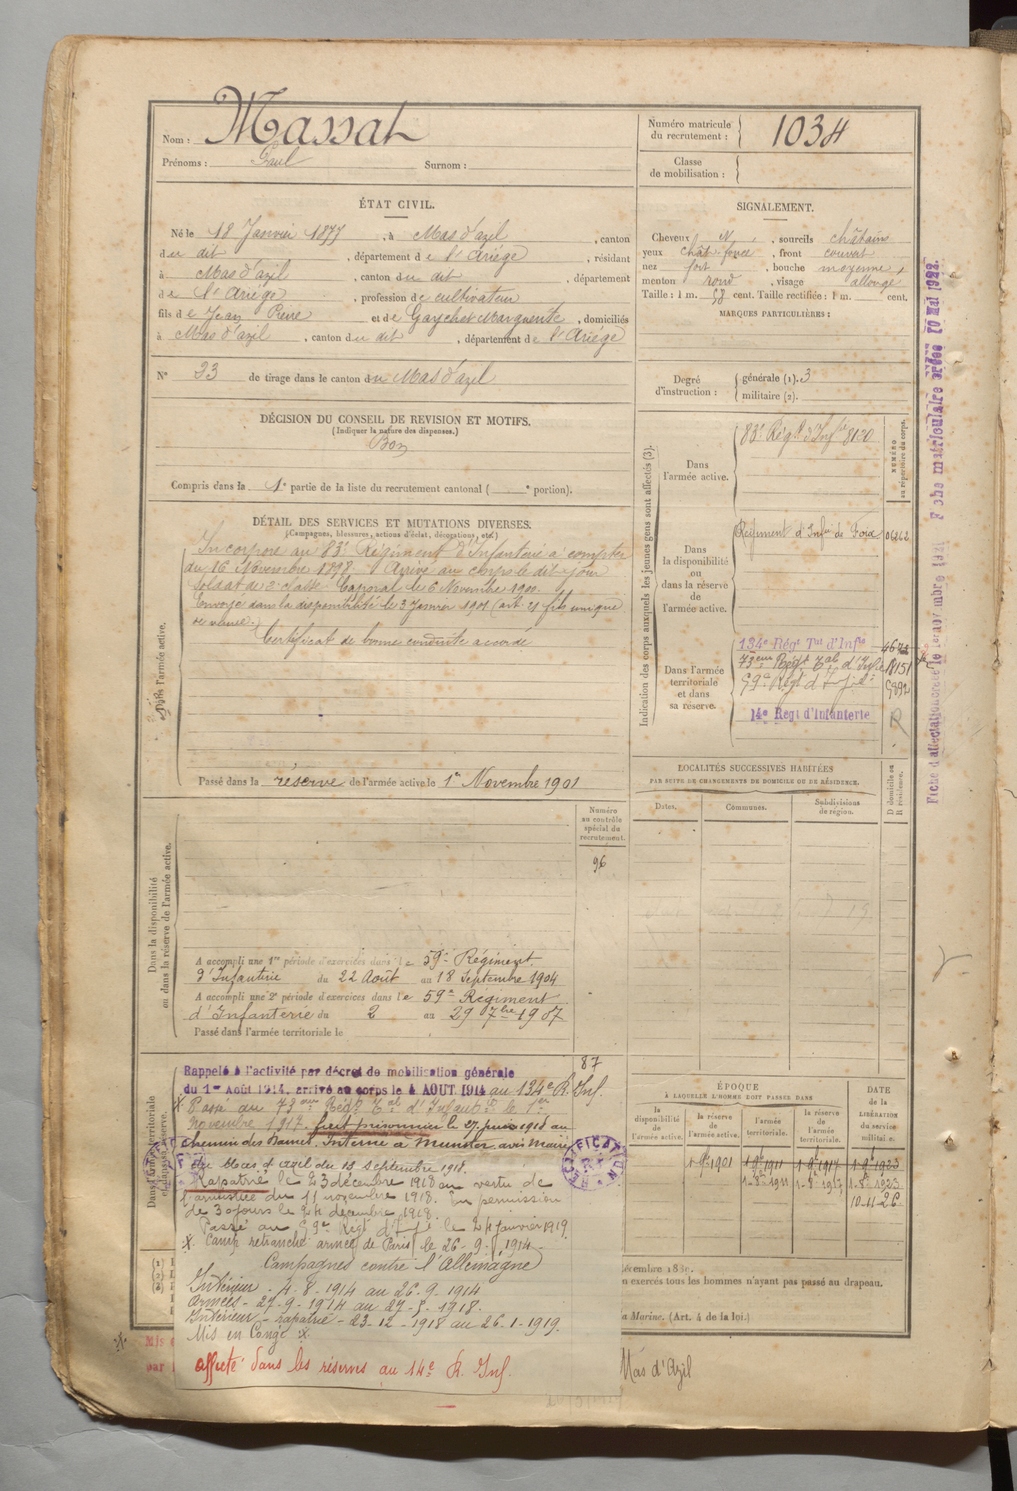 Nom : Massat
Prénoms : Paul Surnom :
Numéro matricule du recrutement : 1034
Classe de mobilisation :
ÉTAT CIVIL.
Né le 18 Janvier 1877, à Mas d'azil, canton
du dit, département de l'Ariège, résidant
à Mas d'azil, canton du dit département
de l'Ariège, profession de cultivateur
fils de Jean Pierre et de Gaychet Marguerite, domiciliés
à Mas d'azil, canton du dit, département de l'Ariège
N° 23 de tirage dans le canton du Mas d'azil
SIGNALEMENT.
Cheveux N, sourcils châtains
yeux chât. foncé, front couvert
nez fort, bouche moyenne,
menton rond, visage allongé
Taille : 1 m. 58 cent. Taille rectifiée : 1 m. cent.
MARQUES PARTICULIÈRES :
Degré d'instruction : générale (1). 3
militaire (2).
DÉCISION DU CONSEIL DE REVISION ET MOTIFS.
(Indiquer la nature des dispenses.)
Bon
Compris dans la 1e partie de la liste du recrutement cantonal ( e portion).
DÉTAIL DES SERVICES ET MUTATIONS DIVERSES.
(Campagnes, blessures, actions d'éclat, décorations, etc.)
Dans l'armée active.
Incorporé au 83e Régiment d'Infanterie à compter
du 16 Novembre 1898. Arrivé au corps le dit jour
soldat de 2e classe. Caporal le 6 Novembre 1900.
Envoyé dans la disponibilité le 3 Janvier 1901 (art. 21 fils unique
de veuve.)
Certificat de bonne conduite accordé
Passé dans la réserve de l'armée active le 1er Novembre 1901
Indication des corps auxquels les jeunes gens sont affectés (3).
NUMÉRO au répertoire du corps.
Dans l'armée active.
83e Régt d'Infie 8120
Dans la disponibilité ou dans la réserve de l'armée active.
Régiment d'Infie de Foix 06262
Dans l'armée territoriale et dans sa réserve.
134e Régt Tal d'Infie
73eme Régt Tal d'Infie 18151
59e Régt d'Infie
14e Régt d'Infanterie R
Fiche d'affectation
Fiche matriculaire créée 10 Mai 1922.
LOCALITÉS SUCCESSIVES HABITÉES
PAR SUITE DE CHANGEMENTS DE DOMICILE OU DE RÉSIDENCE.
Dates. Communes. Subdivisions de région. D domicile ou R résidence.
Dans la disponibilité ou dans la réserve de l'armée active.
Numéro au contrôle spécial du recrutement.
96
A accompli une 1re période d'exercices dans le 59e Régiment
d'Infanterie du 22 Août au 18 Septembre 1904
A accompli une 2e période d'exercices dans le 59e Régiment
d'Infanterie du 2 au 29 7bre 1907
Passé dans l'armée territoriale le
87
Rappelé à l'activité par décret de mobilisation générale
du 1er Août 1914, arrivé au corps le 4 AOUT 1914 au 134e R. Inf.
X Passé au 73eme Régt Tal d'Infanterie le 1er
Novembre 1917. fait prisonnier le 27 1918 au
chemin des Dames. Interné à Munster avis Mairie
du Mas d'azil du 13 septembre 1918.
Rapatrié le 23 décembre 1918 en vertu de
l'armistice du 11 novembre 1918. En permission
de 30 jours le 24 décembre 1918.
Passé au 59e Régt d'Infie le 24 janvier 1919.
X Camp retranché armée de Paris le 26-9-1914
Campagnes contre l'Allemagne
Intérieur - 4-8-1914 au 26-9-1914
armées - 27-9-1914 au 27-5-1918.
Intérieur - rapatrié - 23-12-1918 au 26-1-1919.
Mis en Congé X
affecté dans les réserves au 14e R. Inf.
ÉPOQUE
À LAQUELLE L'HOMME DOIT PASSER DANS
la disponibilité de l'armée active. la réserve de l'armée active. l'armée territoriale. la réserve de l'armée territoriale.
DATE de la LIBÉRATION du service militaire.
1-9bre 1901 1-9bre 1911 1-9bre 1917 1-9bre 1923
1-8bre 1911 1-8bre 1917 1-8bre 1923
10-11-26
RECTIFICATION
n exercés tous les hommes n'ayant pas passé au drapeau.
a Marine. (Art. 4 de la loi.)
Mas d'Azil